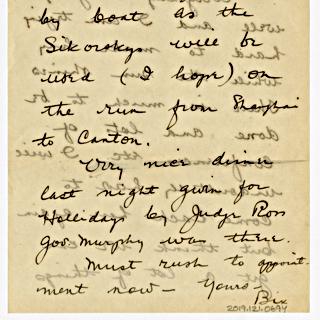 by boat as the
Sikorskys will be
used (I hope) on
the run from Shanghai
to Canton.
Very nice dinner
last night givin for
Hollidays by Judge Ross
Gov. Murphy was there.
Must rush to appoint-
ment now — Yours —
Bix
2019.121.0694